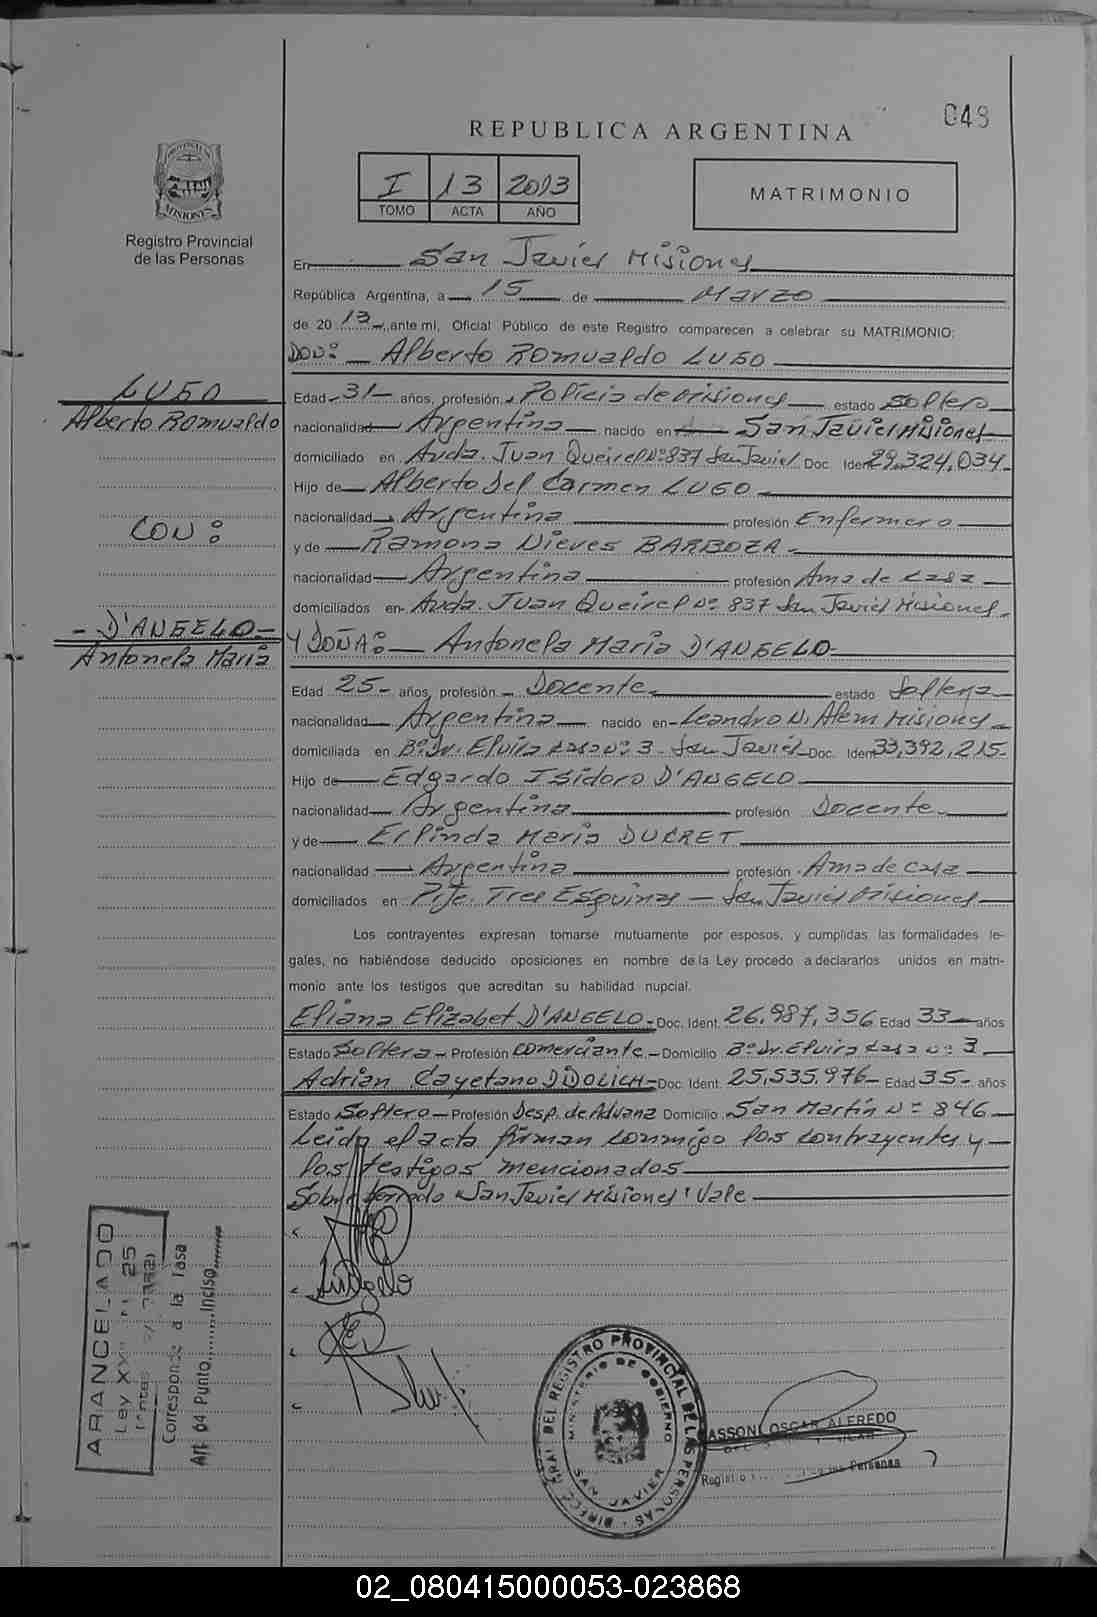 048
REPUBLICA ARGENTINA
I 13 2013
TOMO ACTA AÑO
MATRIMONIO
PROVINCIA DE MISIONES
Registro Provincial
de las Personas
En San Javier Misiones
República Argentina, a 15 de Marzo
de 2013, ante mí, Oficial Público de este Registro comparecen a celebrar su MATRIMONIO:
DON: Alberto Romualdo LUGO
LUGO
Alberto Romualdo
CON:
D'ANGELO
Antonela Maria
Edad 31 años, profesión, Policia de Misiones estado Soltero
nacionalidad Argentina nacido en San Javier Misiones
domiciliado en Avda. Juan Queirel Nº 837 San Javier Doc. Ident 29.324.034
Hijo de Alberto Del Carmen LUGO
nacionalidad Argentina profesión Enfermero
y de Ramona Nieves BARBOZA
nacionalidad Argentina profesión Ama de casa
domiciliados en Avda. Juan Queirel Nº 837 San Javier Misiones
Y DOÑA: Antonela Maria D'ANGELO
Edad 25 años, profesión Docente estado Soltera
nacionalidad Argentina nacido en Leandro N. Alem Misiones
domiciliada en Bº Dr. Elvira casa Nº 3 San Javier Doc. Ident 33.392.215
Hijo de Edgardo Isidoro D'ANGELO
nacionalidad Argentina profesión Docente
y de Erlinda Maria DUCRET
nacionalidad Argentina profesión Ama de casa
domiciliados en Pje. Tres Esquinas San Javier Misiones
Los contrayentes expresan tomarse mutuamente por esposos, y cumplidas las formalidades le-
gales, no habiéndose deducido oposiciones en nombre de la Ley procedo a declararlos unidos en matri-
monio ante los testigos que acreditan su habilidad nupcial.
Eliana Elizabet D'ANGELO Doc. Ident. 26.987.356 Edad 33 años
Estado Soltera Profesión comerciante Domicilio Bº Dr. Elvira casa Nº 3
Adrian Cayetano DIDOLICH Doc. Ident. 25.535.976 Edad 35 años
Estado Soltero Profesión Desp. de Aduana Domicilio San Martin Nº 846
Leida el acta firman conmigo los contrayentes y
los testigos mencionados
Sobre borrado "San Javier Misiones" Vale
ARANCELADO
Ley XX
25
Corresponde a la Tasa
Art. 64 Punto Inciso
DEL REGISTRO PROVINCIAL DE LAS PERSONAS
MINISTERIO DE GOBIERNO
SAN JAVIER
OSCAR ALFREDO
Personas
02_080415000053-023868